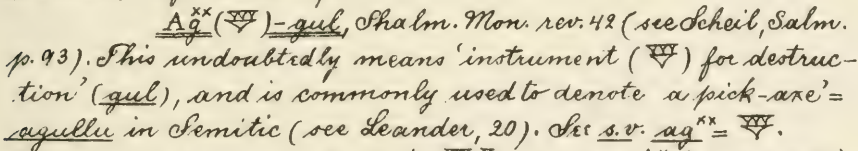 Ag̃ˣˣ (𒐼)-gul, Shalm. Mon. rev. 42 (see Scheil, Salm.
p. 93). This undoubtedly means 'instrument () for destruc-
tion' (gul), and is commonly used to denote a pick-axe' =
agullu in Semitic (see Leander, 20). See s.v. ag̃ˣˣ =